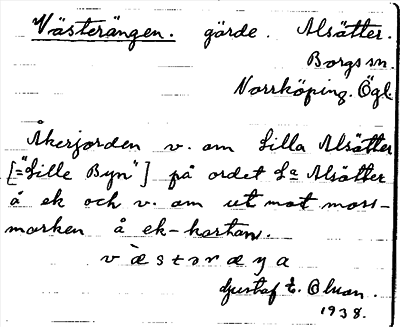 Västerängen. gärde. Alsätter.
Borgs sn.
Norrköping. Ögl.
Åkerjorden v. om Lilla Alsätter
[="Lille Byn"] på ordet La Alsätter
å ek och v. om ut mot moss-
marken å ek-kartan.
væstəræŋa
Gustaf E. Olson.
1938.